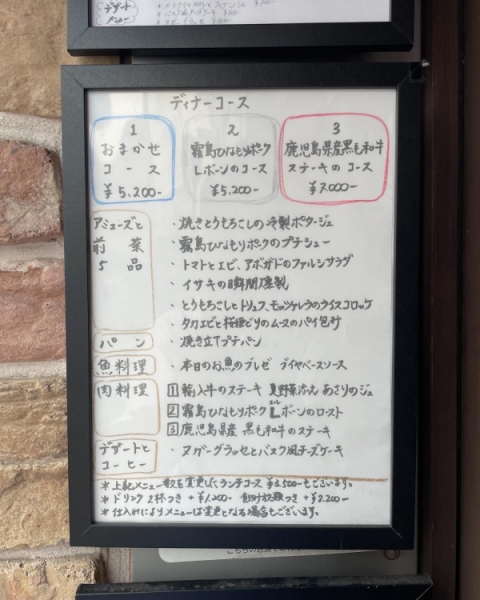 デザート
メニュー
ディナーコース
1
おまかせ
コース
¥5,200-
2
霧島ひなもりポーク
Lボーンのコース
¥5,200-
3
鹿児島県産黒毛和牛
ステーキのコース
¥7,000-
アミューズと
前菜
5品
・焼きとうもろこしの冷製ポタージュ
・霧島ひなもりポークのプチシュー
・トマトとエビ、アボガドのファルシサラダ
・イサキの瞬間燻製
・とうもろこしとトリュフ、モッツァレラのライスコロッケ
・タカエビと桜姫どりのムースのパイ包み
パン
・焼き立てプチパン
魚料理
・本日のお魚のブレゼ ブイヤベースソース
肉料理
1 輸入牛のステーキ 夏野菜添え あさりのジュ
2 霧島ひなもりポーク Lボーンのロースト
エル
3 鹿児島県産 黒毛和牛のステーキ
デザートと
コーヒー
・ヌガーグラッセとバスク風チーズケーキ
*上記メニュー数を変更したランチコース ¥3,500-もございます。
*ドリンク2杯つき +¥1,200- 飲み放題つき +¥2,200-
*仕入れによりメニューは変更となる場合もございます。